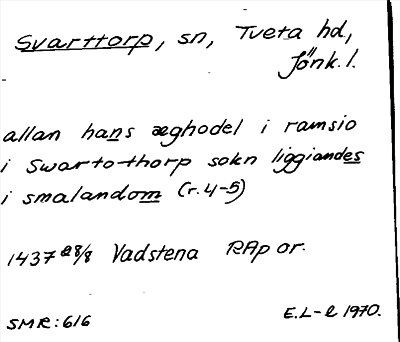 Svarttorp, sn, Tveta hd,
Jönk. l.
allan hans æghodel i ramsio
i Swarto-thorp sokn liggiandes
i smalandom (r. 4-5)
1437 28/8 Vadstena RAp or.
SMR: 616
E.L-l 1970.